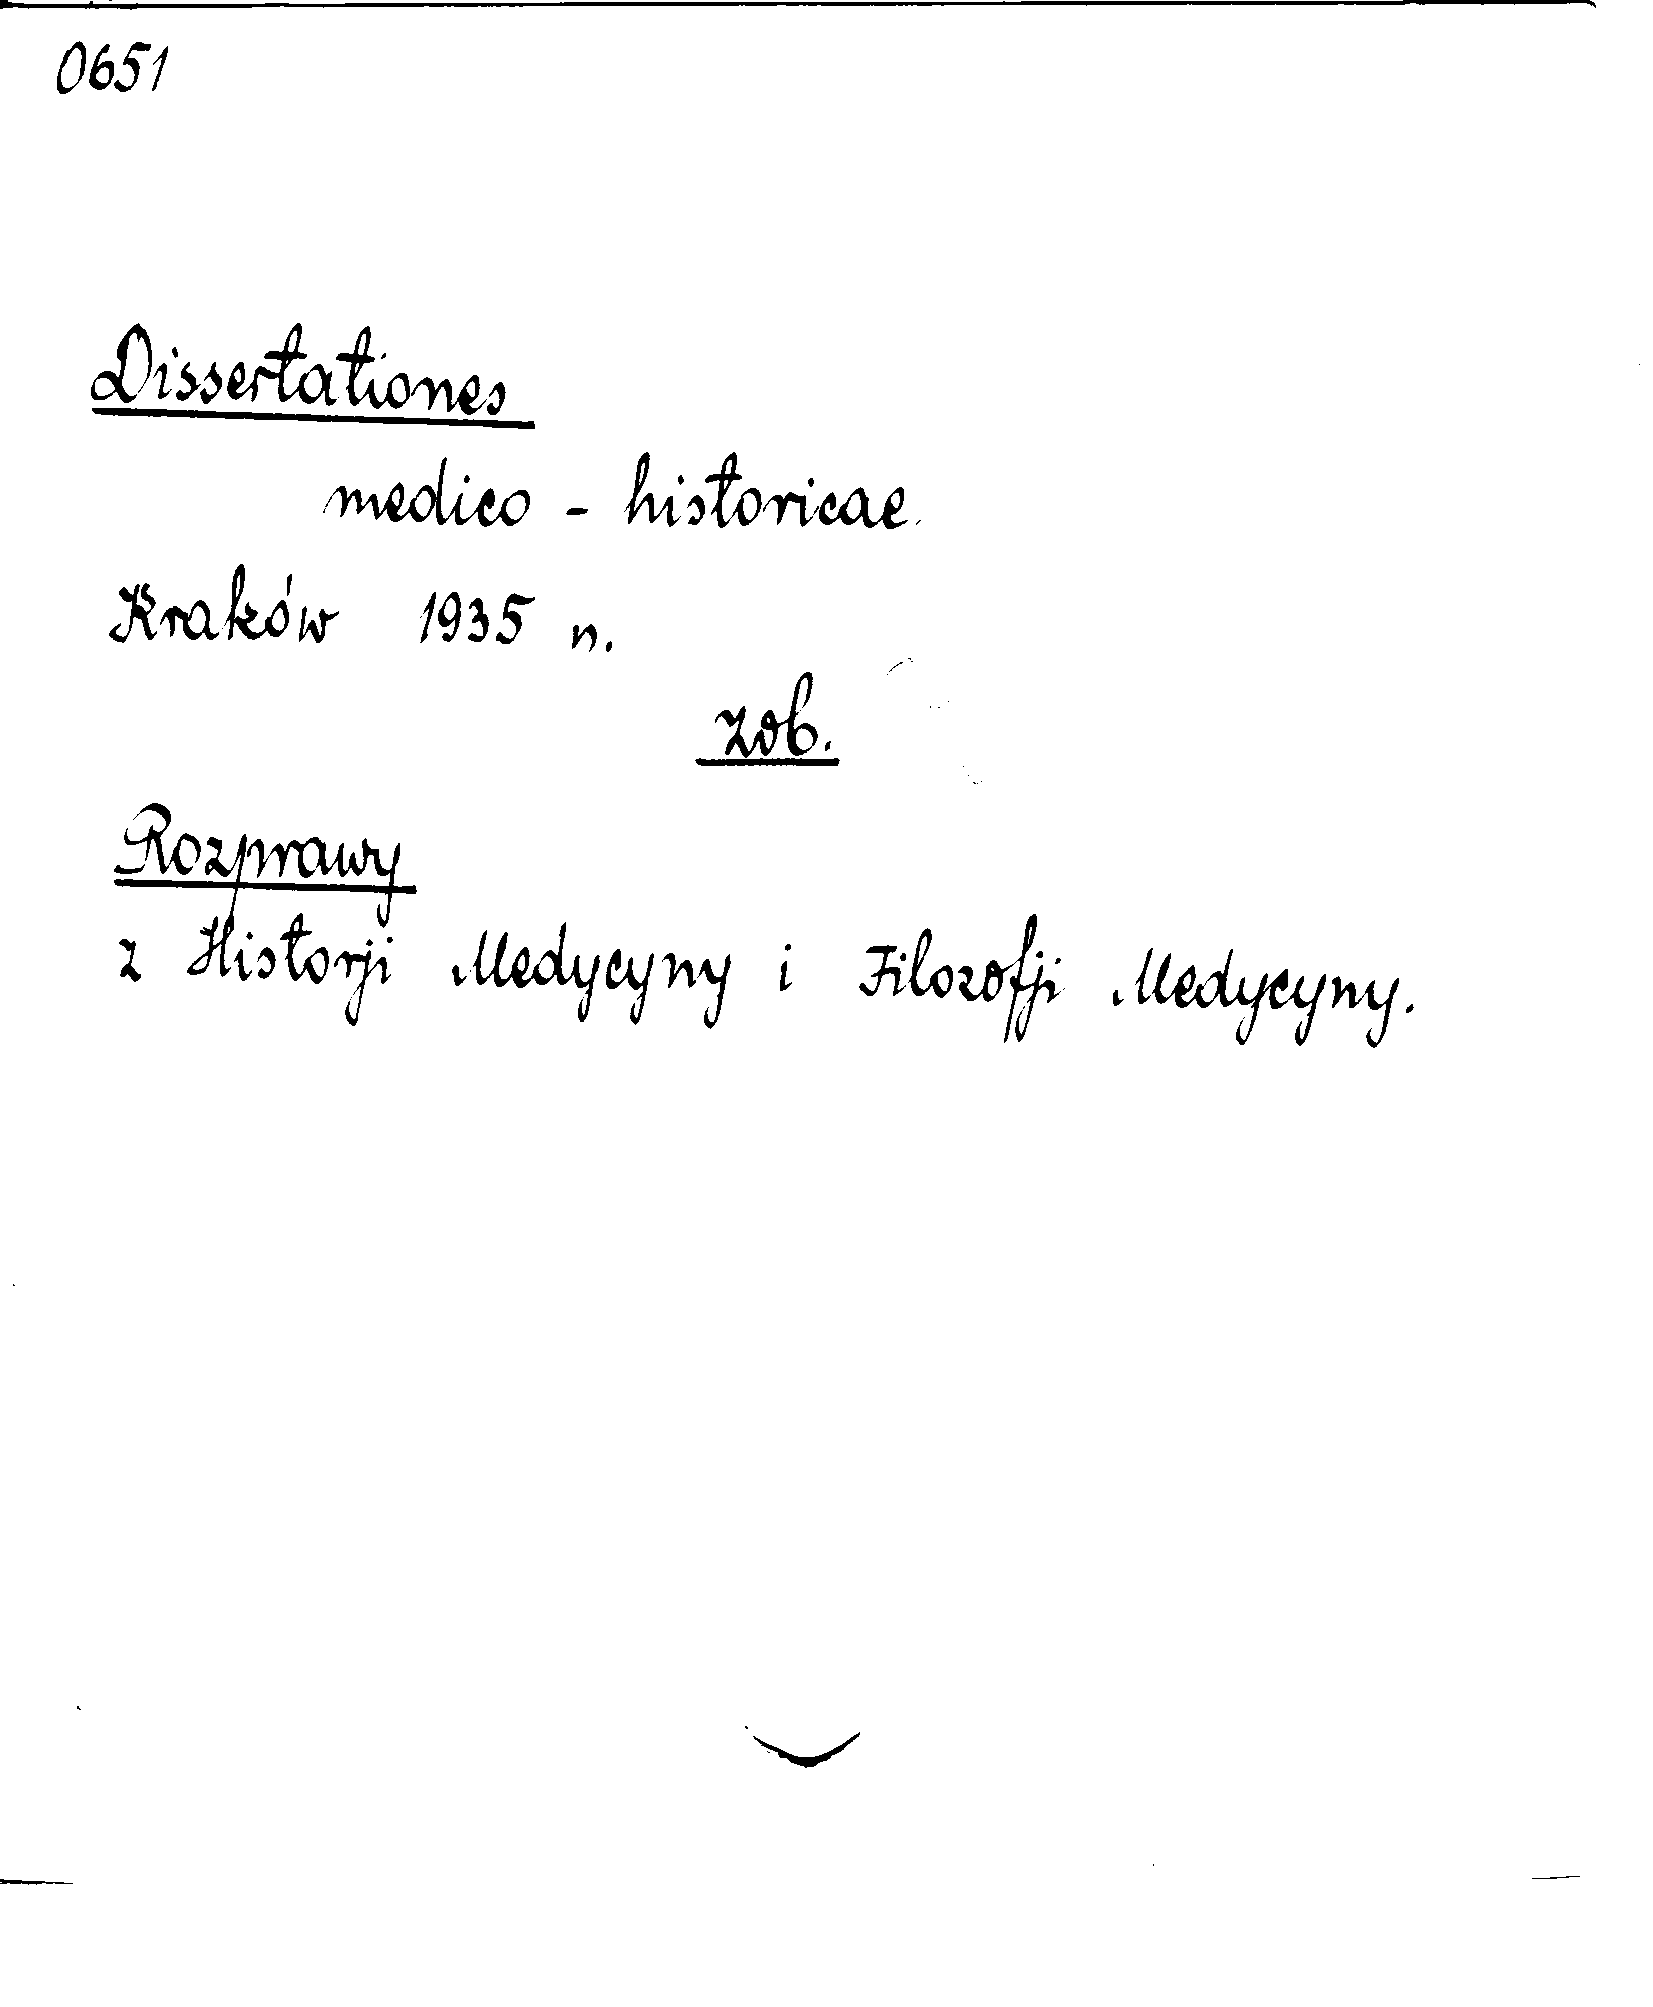 0651
Dissertationes
medico - historicae.
Kraków 1935 n.
zob.
Rozprawy
z Historji Medycyny i Filozofji Medycyny.